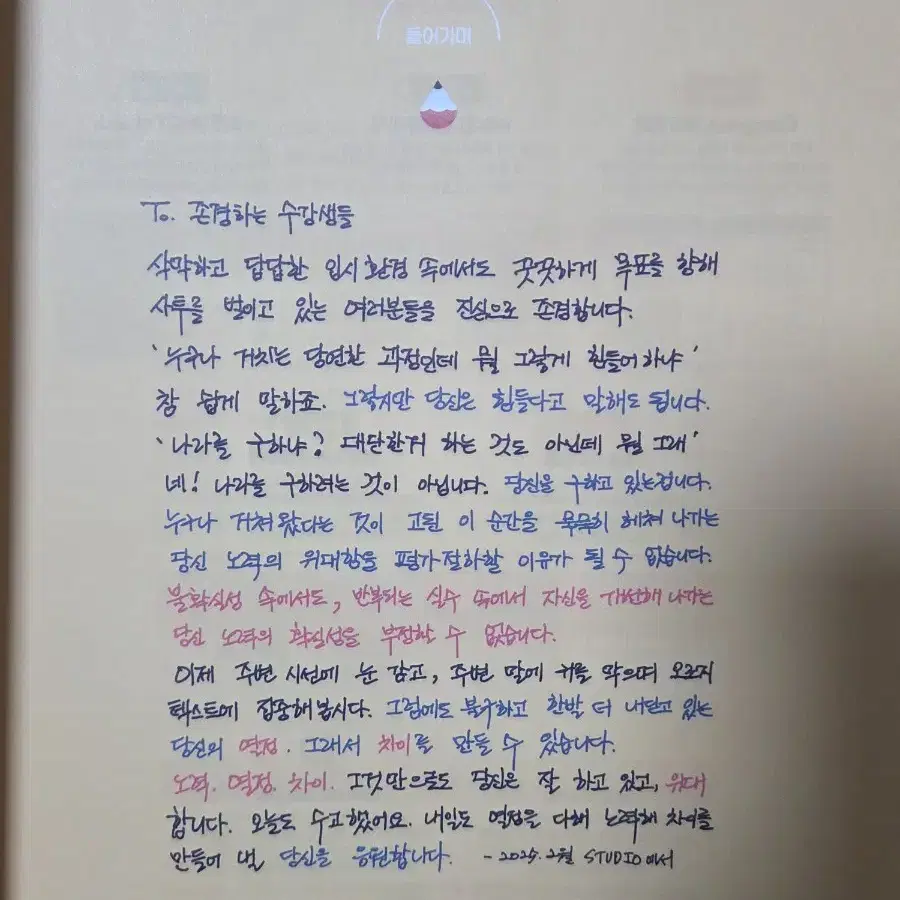 들어가며
To. 존경하는 수강생들
삭막하고 답답한 입시 환경 속에서도 꿋꿋하게 목표를 향해
사투를 벌이고 있는 여러분들을 진심으로 존경합니다.
'누구나 거치는 당연한 과정인데 뭘 그렇게 힘들어 하냐'
참 쉽게 말하죠. 그렇지만 당신은 힘들다고 말해도 됩니다.
'나라를 구하냐? 대단한거 하는 것도 아닌데 뭘 그래'
네! 나라를 구하려는 것이 아닙니다. 당신을 구하고 있는겁니다.
누구나 거쳐 왔다는 것이 고된 이 순간을 묵묵히 헤쳐 나가는
당신 노력의 위대함을 평가절하할 이유가 될 수 없습니다.
불확실성 속에서도, 반복되는 실수 속에서 자신을 개선해 나가는
당신 노력의 확실성을 부정할 수 없습니다.
이제 주변 시선에 눈 감고, 주변 말에 귀를 막으며 오로지
텍스트에 집중해 봅시다. 그럼에도 불구하고 한발 더 내딛고 있는
당신의 열정. 그래서 차이를 만들 수 있습니다.
노력. 열정. 차이. 그것만으로도 당신은 잘 하고 있고, 위대
합니다. 오늘도 수고했어요. 내일도 열정을 다해 노력해 차이를
만들어 낼 당신을 응원합니다. - 2025. 2월 STUDIO에서